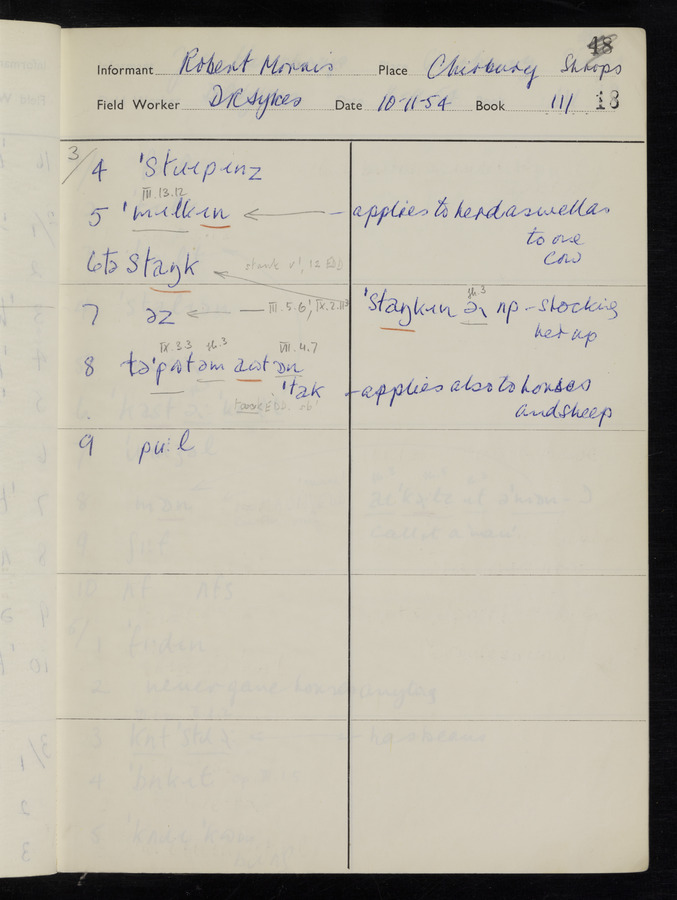 48
Informant Robert Morris Place Chirbury Shrops
Field Worker DR Sykes Date 10-11-54 Book III 18
3/4 'stɹepɪnz
III.13.12
5 'mɪlkɪn ← applies to herd as well as
to one
cow
6 tə staŋk stank v¹, 12 EDD
7 əz ← III.5.6¹, IX.2.11³
'staŋkɪn əɹ ʌp - stocking
her up
IX.3.3 VII.4.7
8 tə'pʊt əm aʊt ən
'tak - applies also to horses
and sheep
tack EDD sb¹
9 pu:l